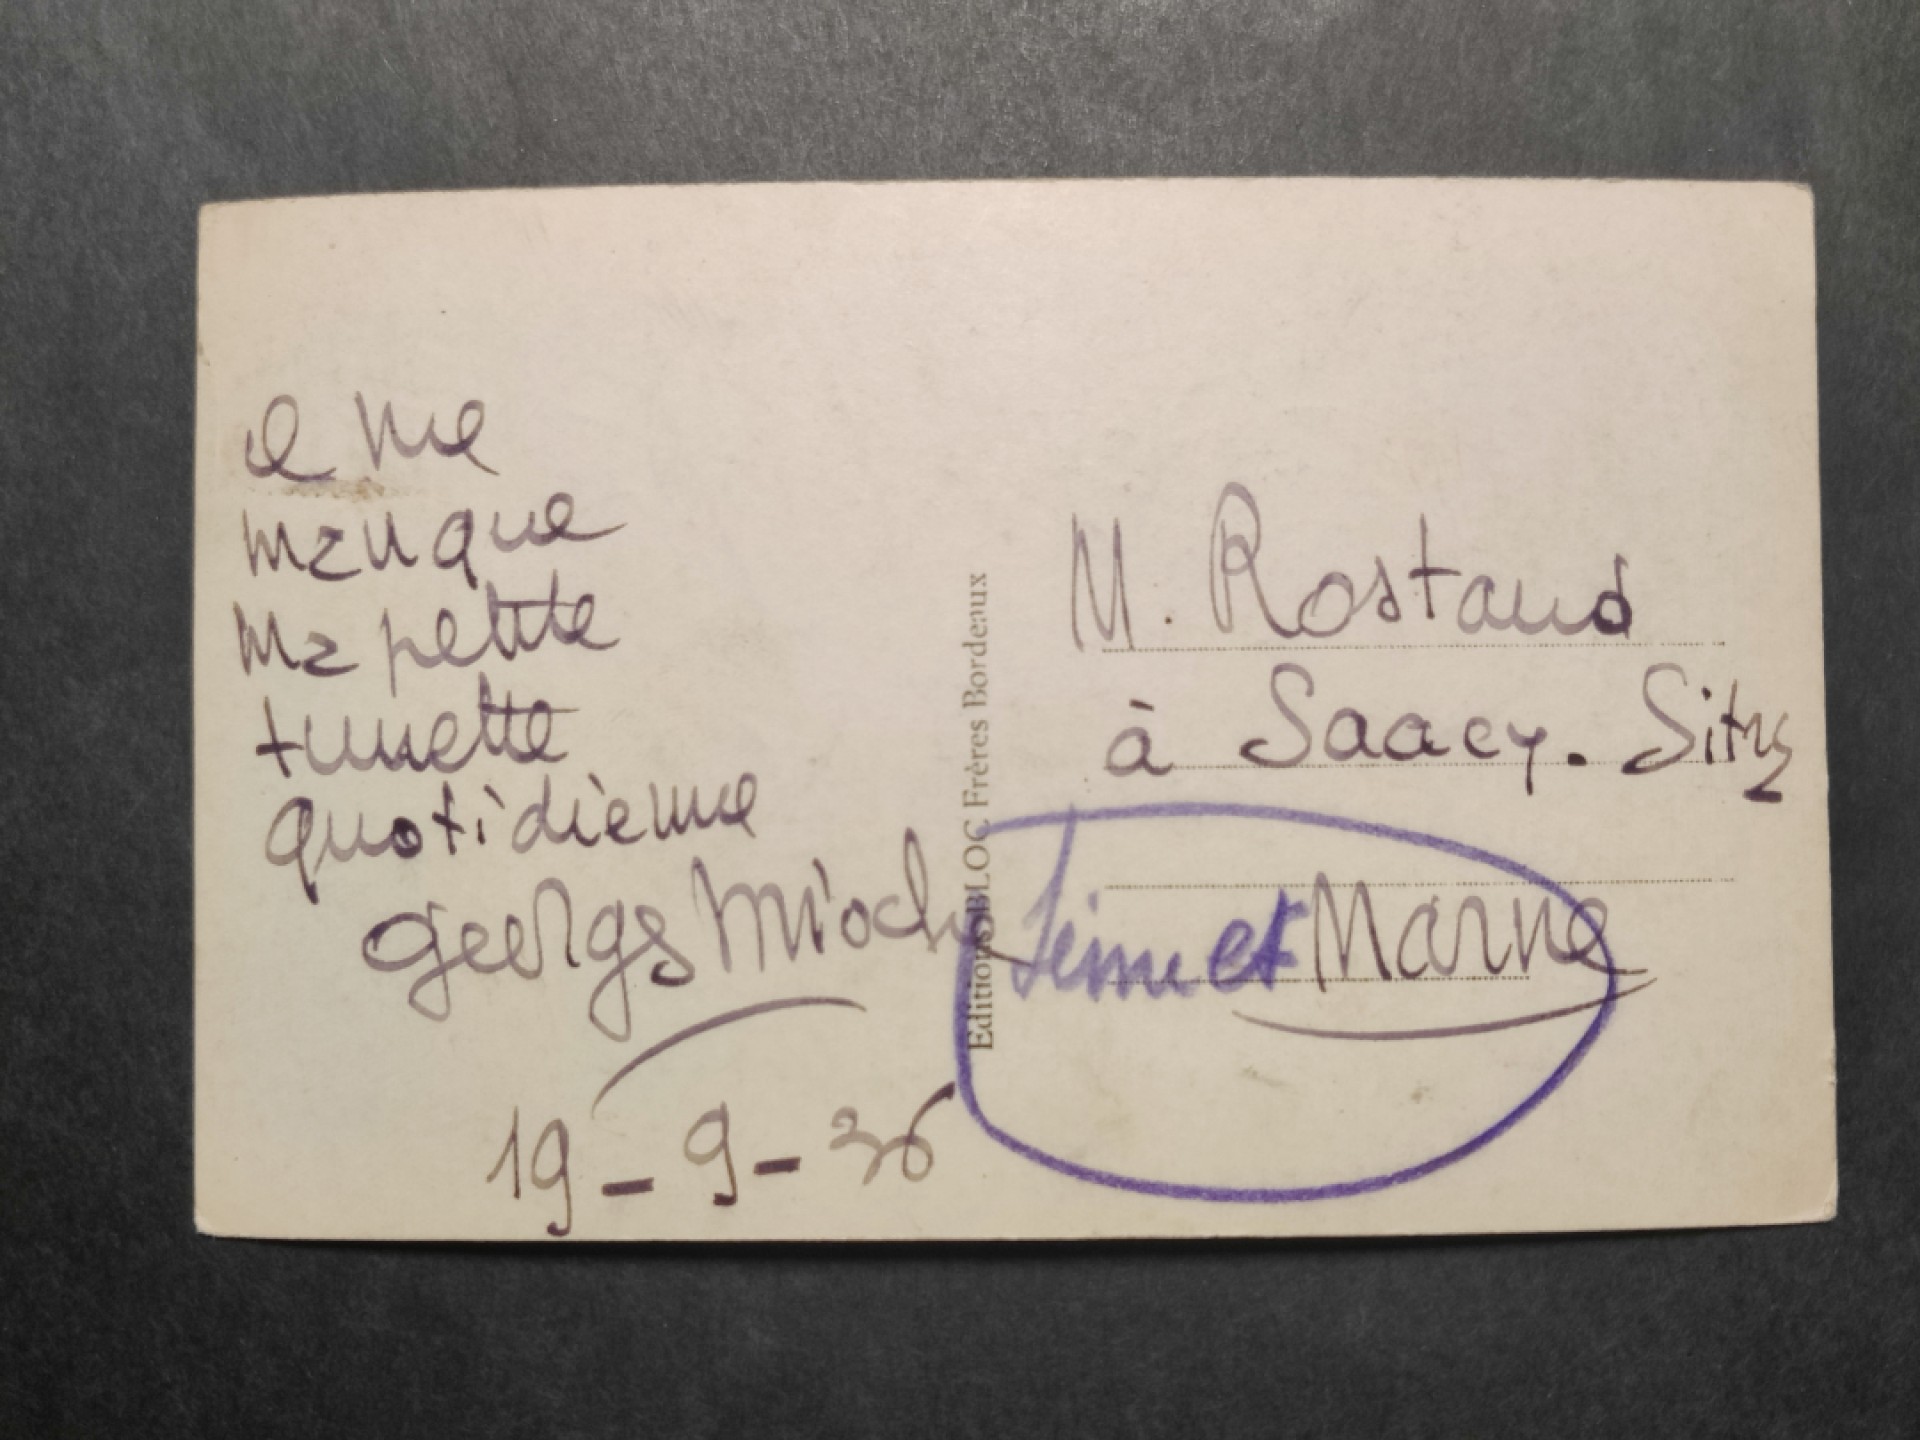 me
manque
ma petite
quotidienne
Georges Mioch
19 - 9 - 36
Editions BLOC Frères Bordeaux
M. Rostand
à Saacy.
Seine et Marne